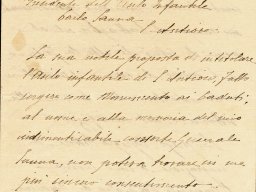 Presidente dell'Asilo Infantile
Carlo Sanna
S. Antioco
La sua nobile proposta di intitolare
l'Asilo infantile di S. Antioco, fatto
sorgere come Monumento ai Caduti,
al nome e alla memoria del mio
indimenticabile consorte Generale
Sanna, non poteva trovare in me
più sincero consentimento.